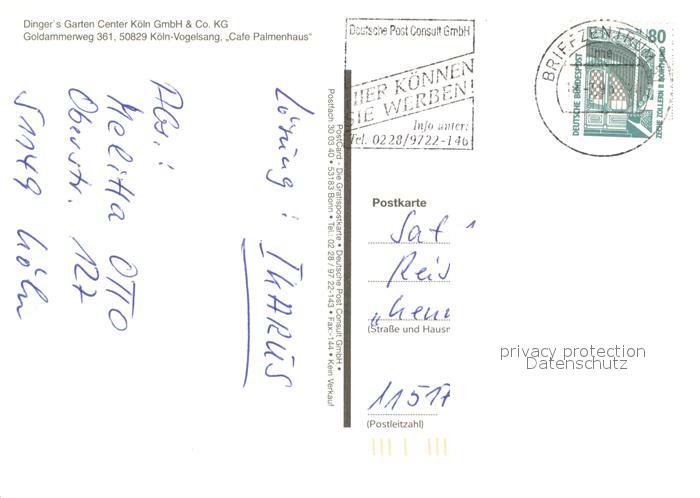 Dinger`s Garten Center Köln GmbH & Co. KG
Goldammerweg 361, 50829 Köln-Vogelsang, „Cafe Palmenhaus"
Deutsche Post Consult GmbH
HIER KÖNNEN
SIE WERBEN!
Info unter:
Tel. 0228/9722-146
BRIEFZENTRUM
80
DEUTSCHE BUNDESPOST
ZECHE ZOLLERN II DORTMUND
Lösung: IKARUS
Abs.:
Melitta OTTO
Oberstr. 127
51149 Köln
PostCard - Die Gratispostkarte • Deutsche Post Consult GmbH •
Postfach 30 03 40 • 53183 Bonn • Tel.: 02 28 / 97 22-143 • Fax:-144 • Kein Verkauf
Postkarte
Sat 1
Reis
(Straße und Hausn
1151
(Postleitzahl)
privacy protection
Datenschutz